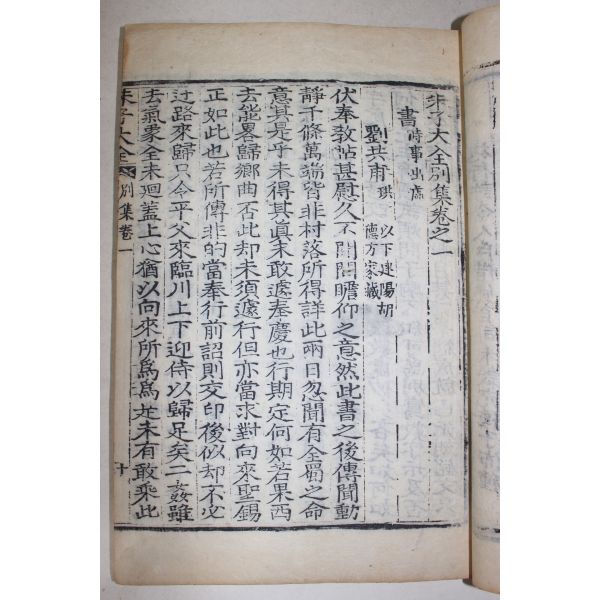 朱子大全別集卷之一
書 時事出處
劉共甫 珙 以下建陽胡德方家藏
伏奉敎帖甚慰久不聞問瞻仰之意然此書之後傳聞動
靜千條萬端皆非村落所得詳此兩日忽聞有全蜀之命
意其是乎未得其眞未敢遽奉慶也行期定何如若果西
去能畧歸鄉曲否此却未須遽行但亦當求對向來聖錫
正如此也若所傳非的當奉行前詔則交印後似却不必
迂路來歸只令平父來臨川上下迎侍以歸足矣二姦雖
去氣象全未廻蓋上心猶以向來所爲爲是未有敢乘此
朱子大全 別集卷一 十